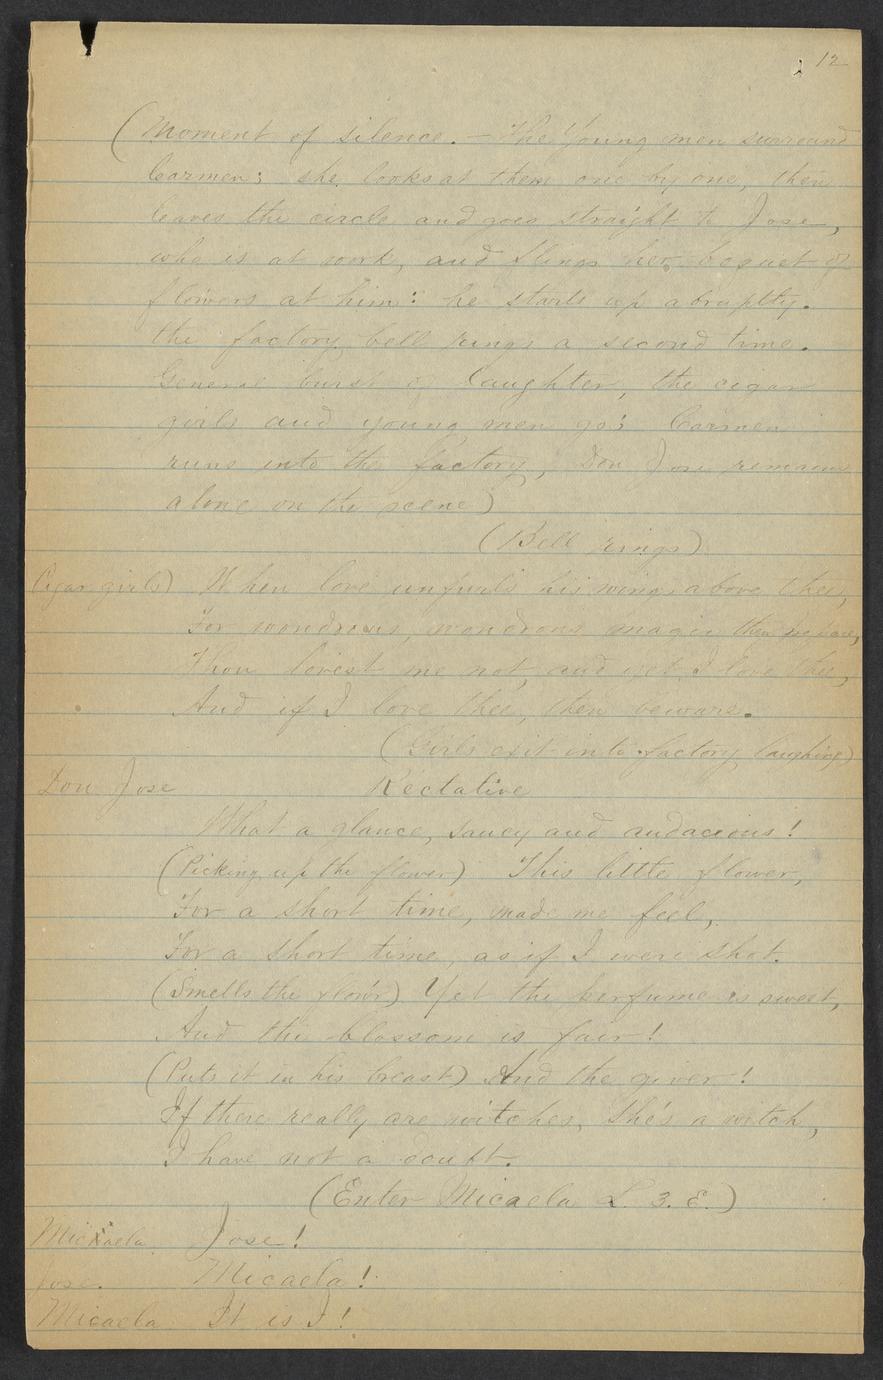 12
(Moment of silence. — The Young men surround
Carmen; she looks at them one by one, then
leaves the circle and goes straight to Jose,
who is at work, and flings her boquet of
flowers at him: he starts up abruptly.
the factory bell rings a second time.
General burst of laughter, the cigar
girls and young men go; Carmen
runs into the factory, Don Jose remains
alone on the scene)
(Bell rings)
Cigar girls) When love unfurls his wings above thee,
For wondrous, wondrous magic then
Thou lovest me not, and yet I love thee,
And if I love thee, then beware.
(Girls exit into factory laughing)
Don Jose Rectative
What a glance, saucy and audacious!
(Picking up the flower) This little flower,
For a short time, made me feel,
For a short time, as if I were shot.
(Smells the flow'r) Yet the perfume is sweet,
And the blossom is fair!
(Puts it in his breast) And the giver!
If there really are witches, She's a witch,
I have not a doubt.
(Enter Micaela L. 3. E.)
Micaela Jose!
Jose. Micaela!
Micaela It is I!